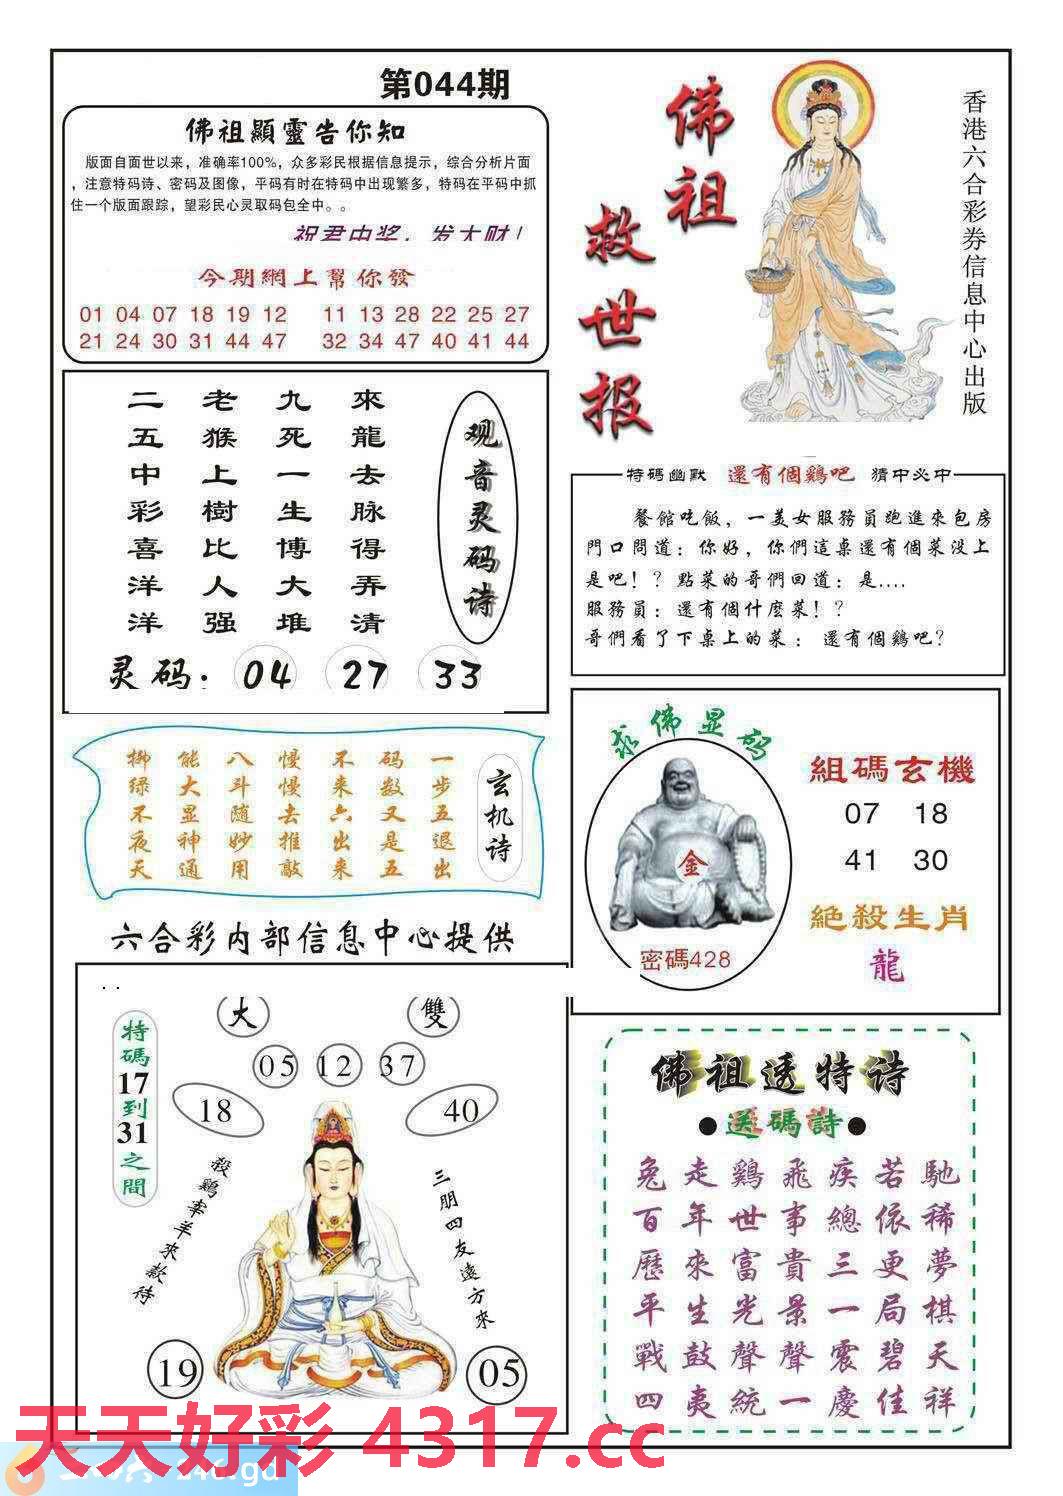 第044期
佛祖顯靈告你知
版面自面世以来，准确率100%，众多彩民根据信息提示，综合分析片面
，注意特码诗、密码及图像，平码有时在特码中出现繁多，特码在平码中抓
住一个版面跟踪，望彩民心灵取码包全中。。
祝君中奖，发大财！
今期網上幫你發
01 04 07 18 19 12 11 13 28 22 25 27
21 24 30 31 44 47 32 34 47 40 41 44
佛祖
救世报
香港六合彩券信息中心出版
观音灵码诗
來龍去脉得弄清
九死一生博大堆
老猴上樹比人强
二五中彩喜洋洋
灵码：04 27 33
特碼幽默 還有個鷄吧 猜中必中
餐館吃飯，一美女服務員跑進來包房
門口問道：你好，你們這桌還有個菜没上
是吧！？點菜的哥們回道：是....
服務員：還有個什麽菜！？
哥們看了下桌上的菜：還有個鷄吧？
玄机诗
一步五退出
码数又是五
不来六出来
慢慢去推敲
八斗随妙用
能大显神通
柳绿不夜天
求佛显码
金
密碼428
組碼玄機
07 18
41 30
絕殺生肖
龍
六合彩内部信息中心提供
..
大 雙
05 12 37
18 40
特碼17到31之間
殺鷄宰羊來款待
三朋四友遠方來
19 05
佛祖透特诗
●送碼詩●
兔走鷄飛疾若馳
百年世事總依稀
歷來富貴三更夢
平生光景一局棋
戰鼓聲聲震碧天
四夷統一慶佳祥
天天好彩 4317.cc
246.gd